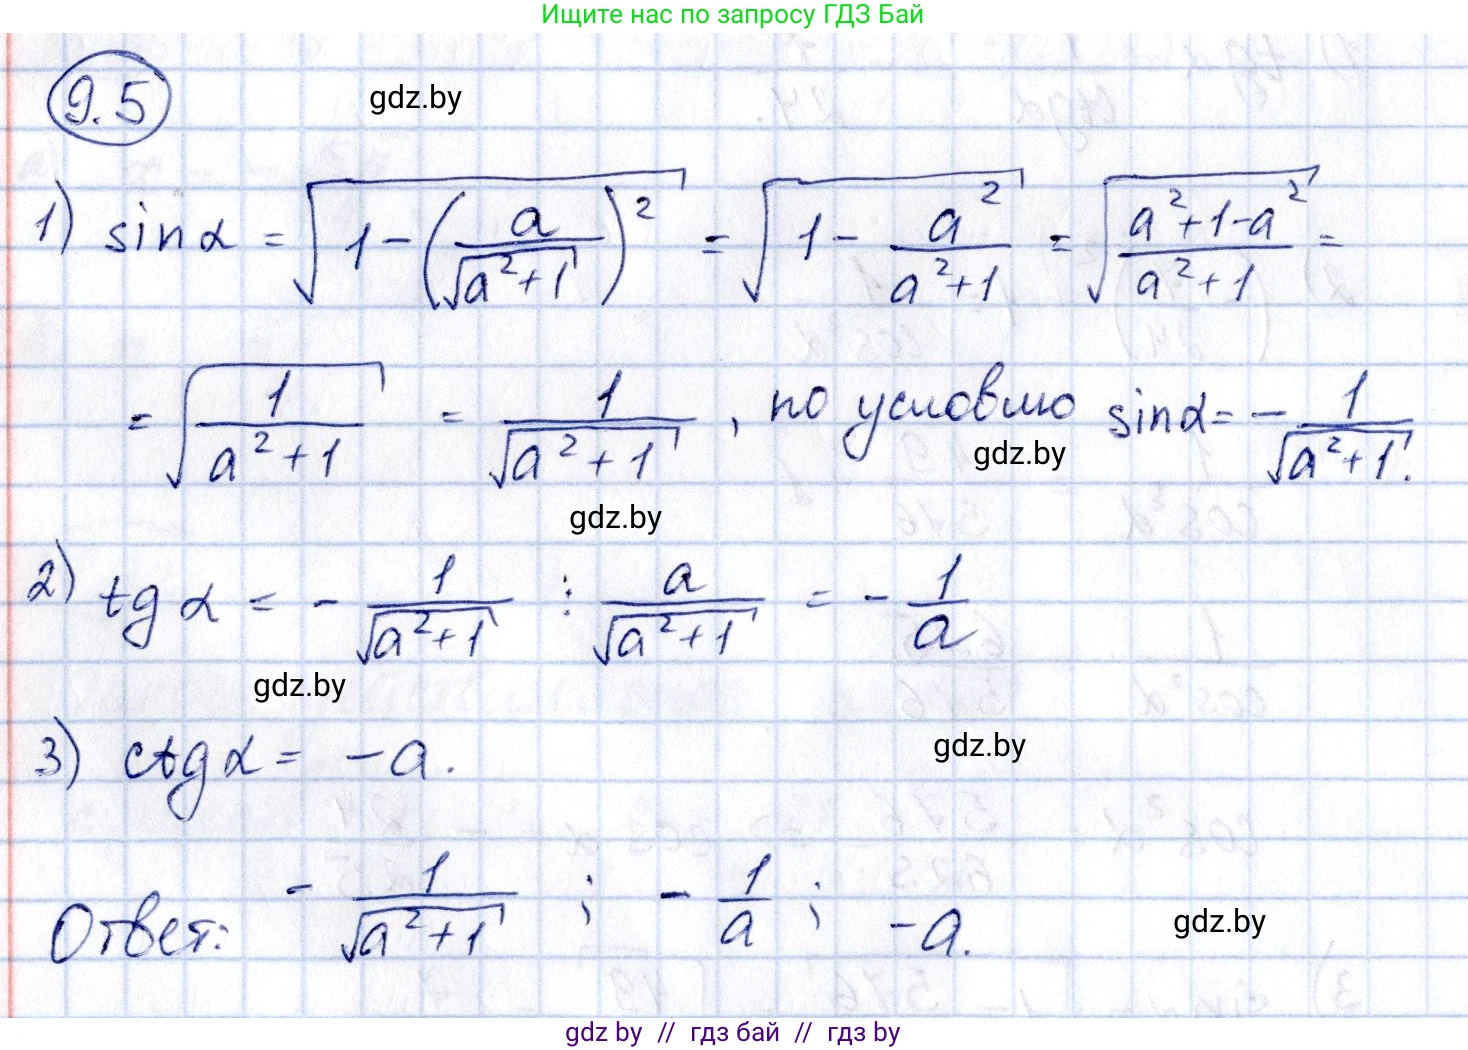 Ищите нас по запросу ГДЗ Бай
9.5
gdz.by
1) sin α = √(1 - (a/√(a²+1))²) = √(1 - a²/(a²+1)) = √((a²+1-a²)/(a²+1)) =
= √(1/(a²+1)) = 1/√(a²+1), по условию sin α = - 1/√(a²+1).
gdz.by
gdz.by
2) tg α = - 1/√(a²+1) : a/√(a²+1) = - 1/a
gdz.by
3) ctg α = -a.
gdz.by
Ответ: - 1/√(a²+1) ; - 1/a ; -a.
gdz.by
gdz by // гдз бай // гдз by